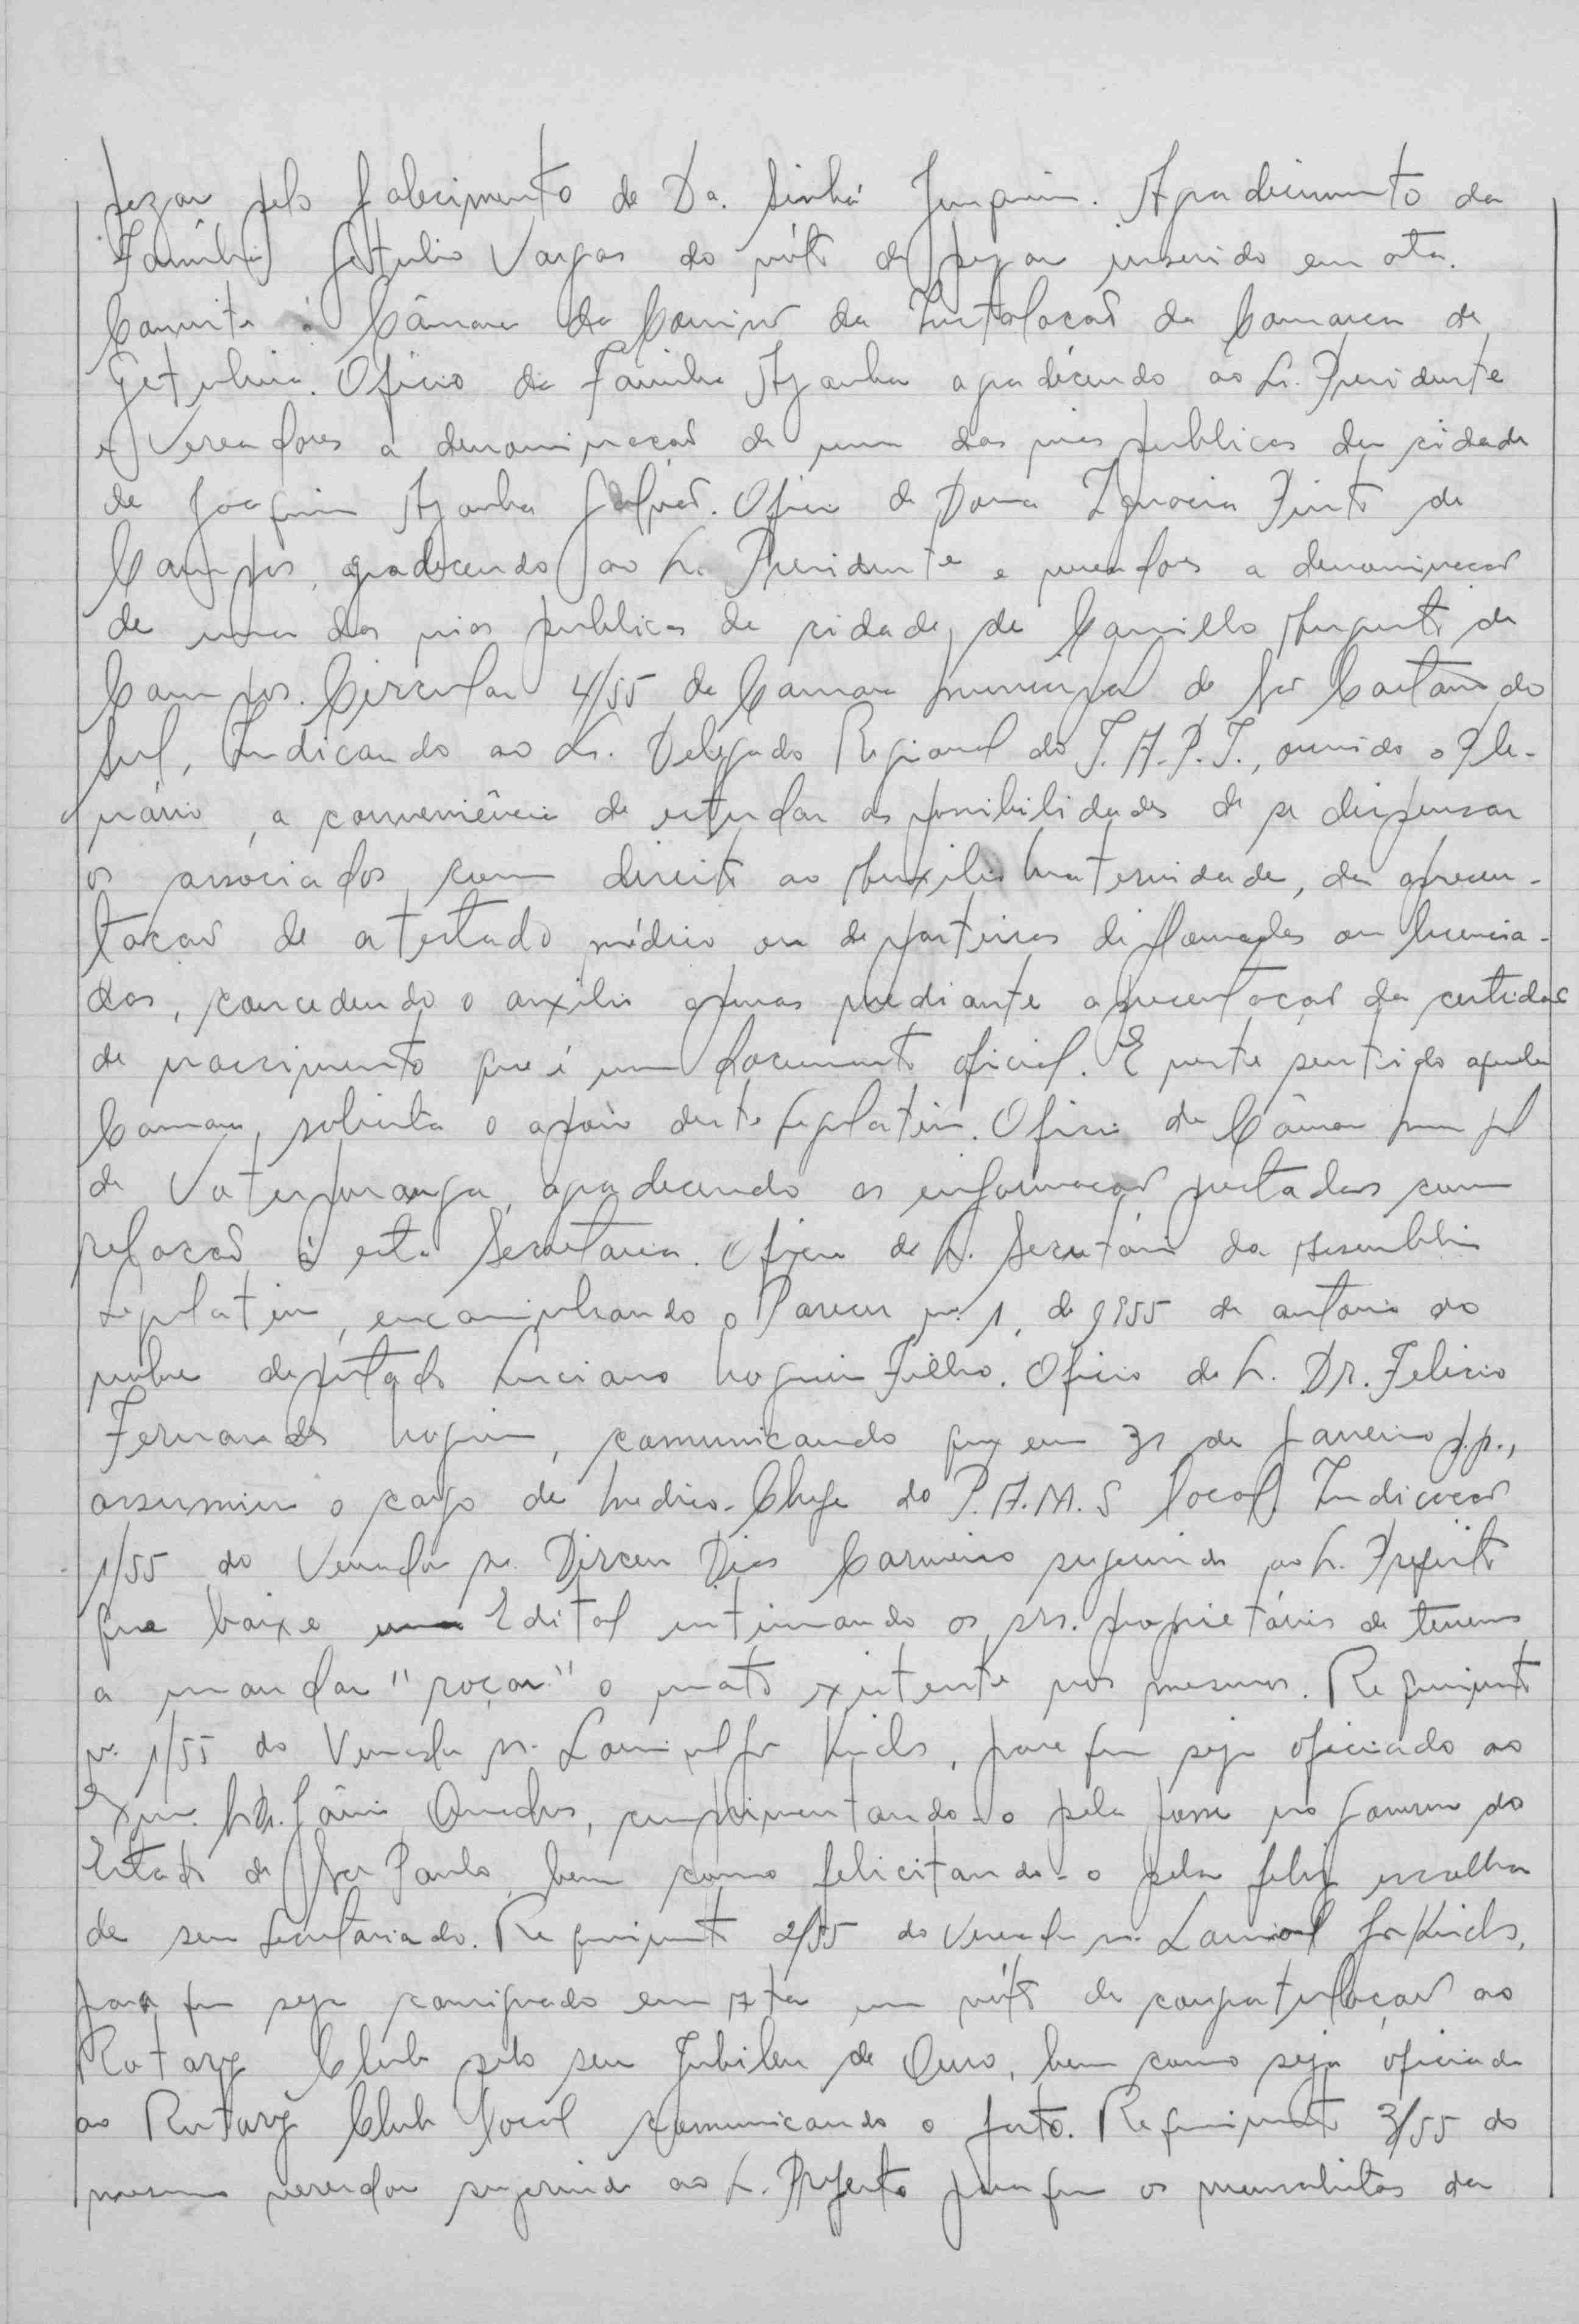 pezar pelo falecimento de Da. Sinhá Junqueira. Agradecimento da
Família Getulio Vargas do vóto de pezar inserido em ata.
Convite á Câmara da Comissão da Instalação da Comarca de
Getulina. Oficio da Familia Azanha agradecendo ao Sr. Presidente
e Vereadores a denominação de uma das vias publicas da cidade
de Joaquim Azanha Galvão. Oficio de Dona Ignacia Pinto de
Campos, agradecendo ao Sr. Presidente e vereadores a denominação
de uma das vias publicas da cidade, de Camillo Augusto de
Campos. Circular 4/55 da Camara municipal de São Caetano do
Sul, Indicando ao Sr. Delegado Regional do I.A.P.I., ouvido o Ple-
nário, a conveniência de estudar as possibilidades de se dispensar
os associados com direito ao Auxilio Maternidade, da apresen-
tação de atestado médico ou de parteiras diplomadas ou licencia-
das, concedendo o auxilio apenas mediante apresentação da certidão
de nascimento que é um documento oficial. E neste sentido aquela
Camara, solicita o apoio deste Legislativo. Oficio da Câmara Munpl
de Votuporanga, agradecendo as informação prestadas com
relação á esta Secretaria. Oficio do Sr. Secretário da Assembléia
Legislativa, encaminhando o Parecer nº 1, de 1955 de autoria do
nobre deputado Luciano Nogueira Filho. Oficio do Sr. DR. Felicio
Fernandes Nogueira, comunicando que em 31 de Janeiro p.p.,
assumiu o cargo de Medico-Chefe do P.A.M.S local. Indicação
1/55 do Vereador sr. Dirceu Dias Carneiro sugerindo ao Sr. Prefeito
que baixe um Edital intimando os srs. proprietários de terrenos
a mandar "roçar" o mato existente nos mesmos. Requerimento
nº 1/55 do Vereador sr. , para que seja oficiado ao
Exmo. Sr. Jânio Quadros, cumprimentando-o pela posse no Governo do
Estado de São Paulo, bem como felicitando-o pela feliz escolha
de seu Secretariado. Requerimento 2/55 do Vereador sr.
para que seja consignado em Ata um vóto de congratulação ao
Rotary Club pelo seu Jubileu de Ouro, bem como seja oficiado
ao Rotary Club local comunicando o fato. Requerimento 3/55 do
mesmo vereador sugerindo ao Sr. Prefeito para que os mensalistas da